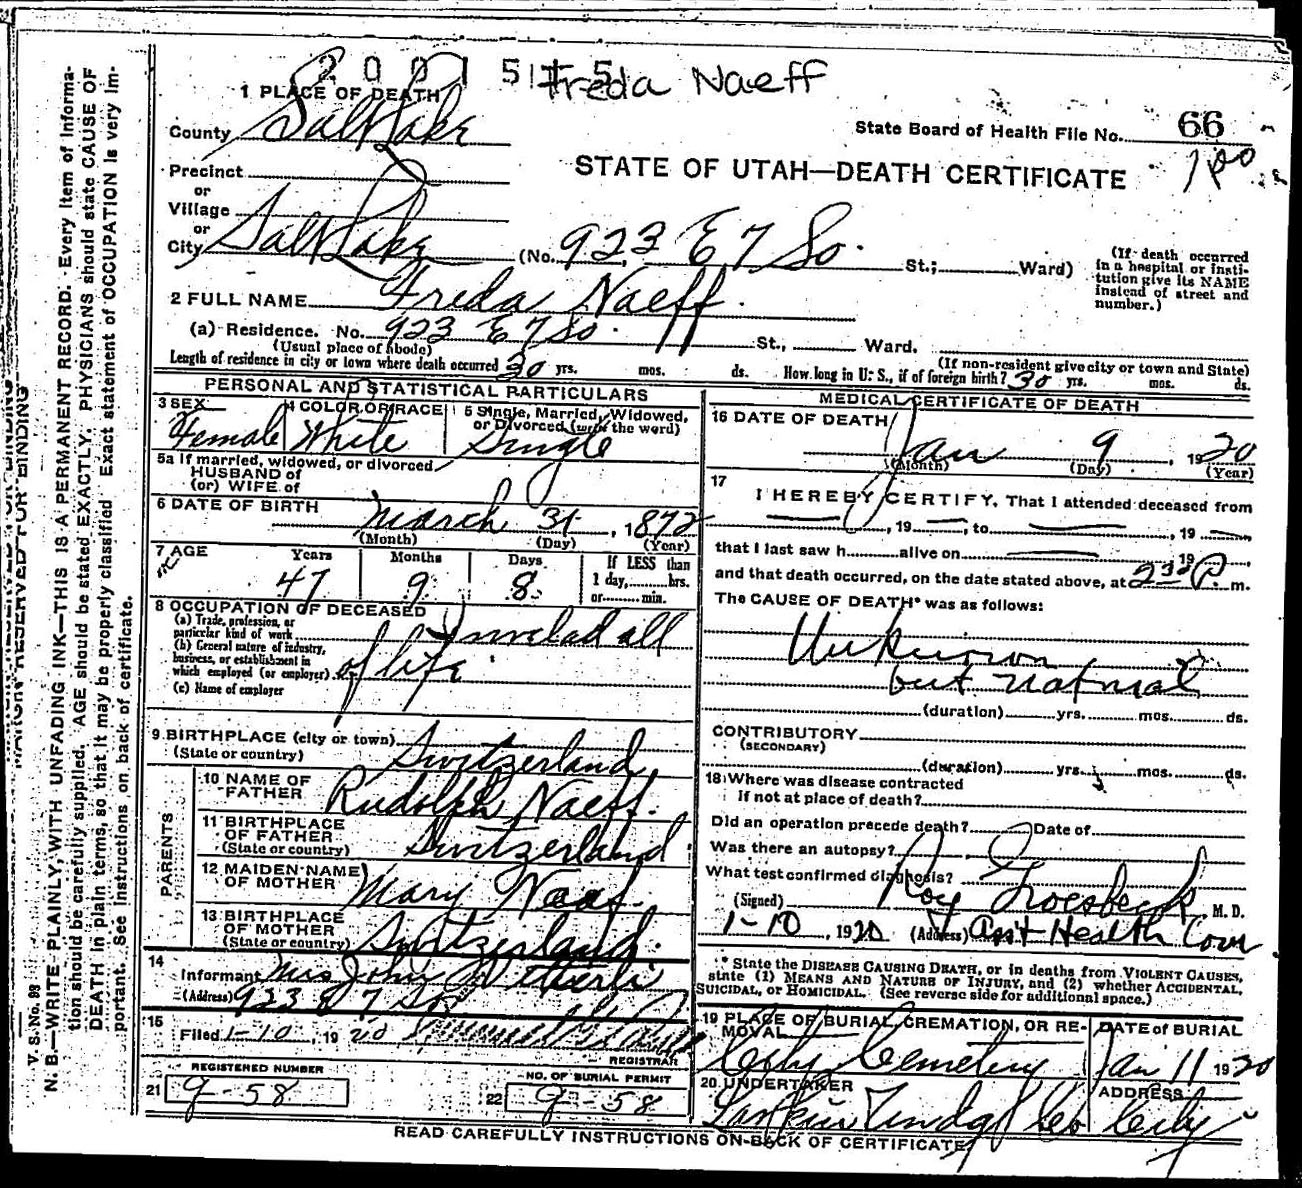 2001515 Freda Naeff
1 PLACE OF DEATH
County Salt Lake
State Board of Health File No. 66
Precinct
STATE OF UTAH—DEATH CERTIFICATE
or
Village
or
City Salt Lake (No. 923 E 7 So. St.; Ward)
(If death occurred in a hospital or institution give its NAME instead of street and number.)
2 FULL NAME Freda Naeff.
(a) Residence. No. 923 E 7 So. St., Ward.
(Usual place of abode) (If non-resident give city or town and State)
Length of residence in city or town where death occurred 30 yrs. mos. ds. How long in U. S., if of foreign birth? 30 yrs. mos. ds.
PERSONAL AND STATISTICAL PARTICULARS
3 SEX Female
4 COLOR OR RACE White
5 Single, Married, Widowed, or Divorced (write the word) Single
5a If married, widowed, or divorced
HUSBAND of
(or) WIFE of
6 DATE OF BIRTH March 31, 1872
(Month) (Day) (Year)
7 AGE Years Months Days If LESS than
47 9 8 1 day, hrs.
or min.
8 OCCUPATION OF DECEASED
(a) Trade, profession, or particular kind of work Invelad all
(b) General nature of industry, business, or establishment in which employed (or employer) of life.
(c) Name of employer
9 BIRTHPLACE (city or town)
(State or country) Switzerland
PARENTS
10 NAME OF FATHER Rudolph Naeff.
11 BIRTHPLACE OF FATHER (State or country) Switzerland
12 MAIDEN NAME OF MOTHER Mary Naef.
13 BIRTHPLACE OF MOTHER (State or country) Switzerland.
14 Informant Mrs John
(Address) 923 E 7 So
15 Filed 1-10, 1920
REGISTRAR
REGISTERED NUMBER
21 9-58
NO. OF BURIAL PERMIT
22 9-58
MEDICAL CERTIFICATE OF DEATH
16 DATE OF DEATH
Jan 9, 1920
(Month) (Day) (Year)
17 I HEREBY CERTIFY, That I attended deceased from
, 19 , to , 19
that I last saw h alive on 19 ,
and that death occurred, on the date stated above, at 230 P m.
The CAUSE OF DEATH* was as follows:
Unknown
but natural
(duration) yrs. mos. ds.
CONTRIBUTORY
(SECONDARY)
(duration) yrs. mos. ds.
18 Where was disease contracted
If not at place of death?
Did an operation precede death? Date of
Was there an autopsy?
What test confirmed diagnosis?
(Signed) Roy Groesbeck M. D.
1-10, 1920 (Address) Ass't Health Com
* State the DISEASE CAUSING DEATH, or in deaths from VIOLENT CAUSES, state (1) MEANS AND NATURE OF INJURY, and (2) whether ACCIDENTAL, SUICIDAL, or HOMICIDAL. (See reverse side for additional space.)
19 PLACE OF BURIAL, CREMATION, OR REMOVAL City Cemetery
DATE of BURIAL Jan 11 1920
20 UNDERTAKER Larkin Undg Co
ADDRESS City
READ CAREFULLY INSTRUCTIONS ON BACK OF CERTIFICATE
V. S. No. 98
MARGIN RESERVED FOR BINDING
N. B.—WRITE PLAINLY, WITH UNFADING INK—THIS IS A PERMANENT RECORD. Every item of information should be carefully supplied. AGE should be stated EXACTLY. PHYSICIANS should state CAUSE OF DEATH in plain terms, so that it may be properly classified. Exact statement of OCCUPATION is very important. See instructions on back of certificate.